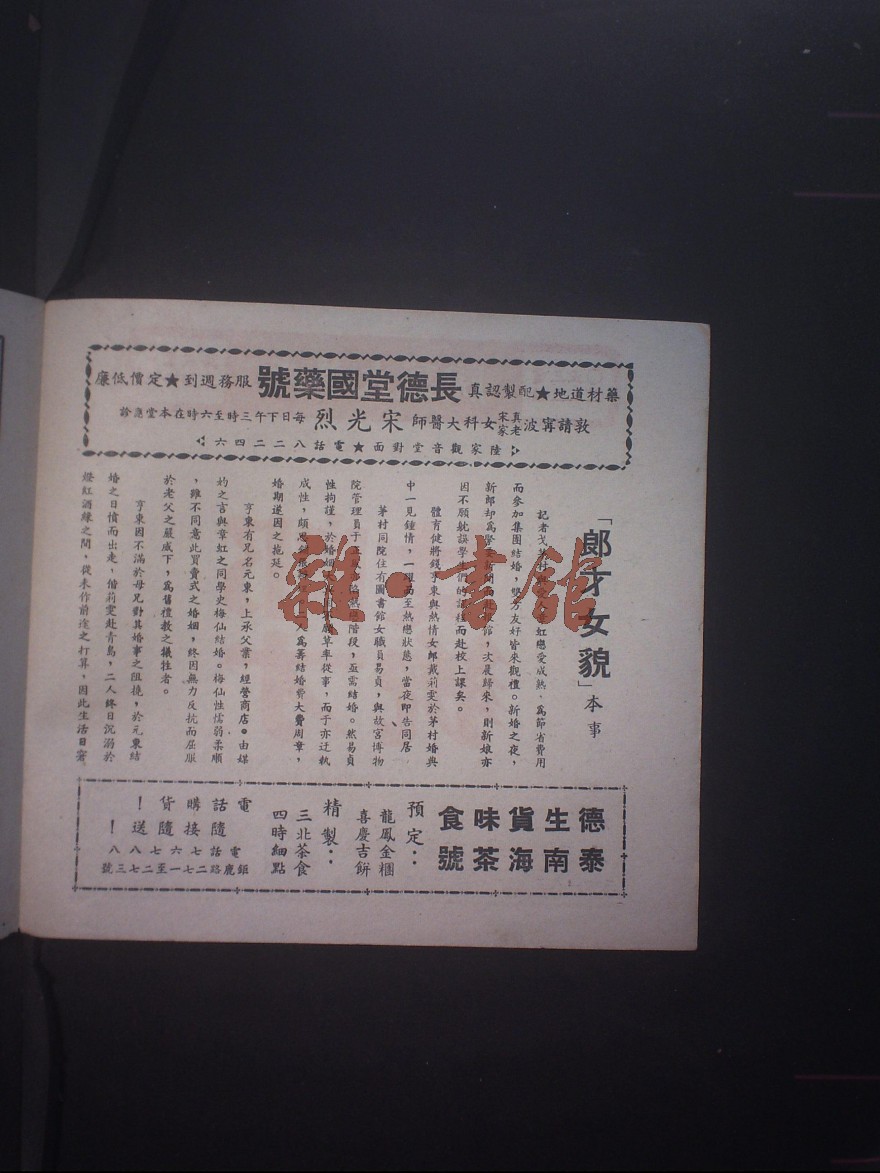 藥材道地★配製認真
長德堂國藥號
服務週到★定價低廉
敦請甯波真老宋家女科大醫師宋光烈每日下午三時至六時在本堂應診
陸家觀音堂對面★電話八二二四六
「郎才女貌」本事
記者戈茅村與愛人章虹戀愛成熟,為節省費用
而參加集團結婚,雙方友好皆來觀禮。新婚之夜,
新郎却為學校新聞而赴報館,次晨歸來,則新娘亦
因不願躭誤學生們的課程而赴校上課矣。
體育健將錢亨東與熱情女郎戴莉雯於茅村婚典
中一見鍾情,一躍而至熱戀狀態,當夜即告同居。
茅村同院住有圖書館女職員易貞,與故宮博物
院管理員于
階段,亟需結婚。然易貞
性拘謹,於婚姻大
草率從事,而于亦迂執
成性,頗
為籌結婚費大費周章,
婚期遂因之拖延。
亨東有兄名元東,上承父業,經營商店。由媒
妁之言與章虹之同學史梅仙結婚。梅仙性懦弱柔順
,雖不同意此買賣式之婚姻,終因無力反抗而屈服
於老父之嚴威下,為舊禮教之犧牲者。
亨東因不滿於母兄對其婚事之阻撓,於元東結
婚之日憤而出走,偕莉雯赴青島,二人終日沉溺於
燈紅酒綠之間,從未作前途之打算,因此生活日窘
雜·書館
德泰
生南
貨海
味茶
食號
預定:
龍鳳金糰
喜慶吉餅
精製:
三北茶食
四時細點
電話購貨!
隨接隨送!
電話七六七八八
鉅鹿路二七一至二七三號